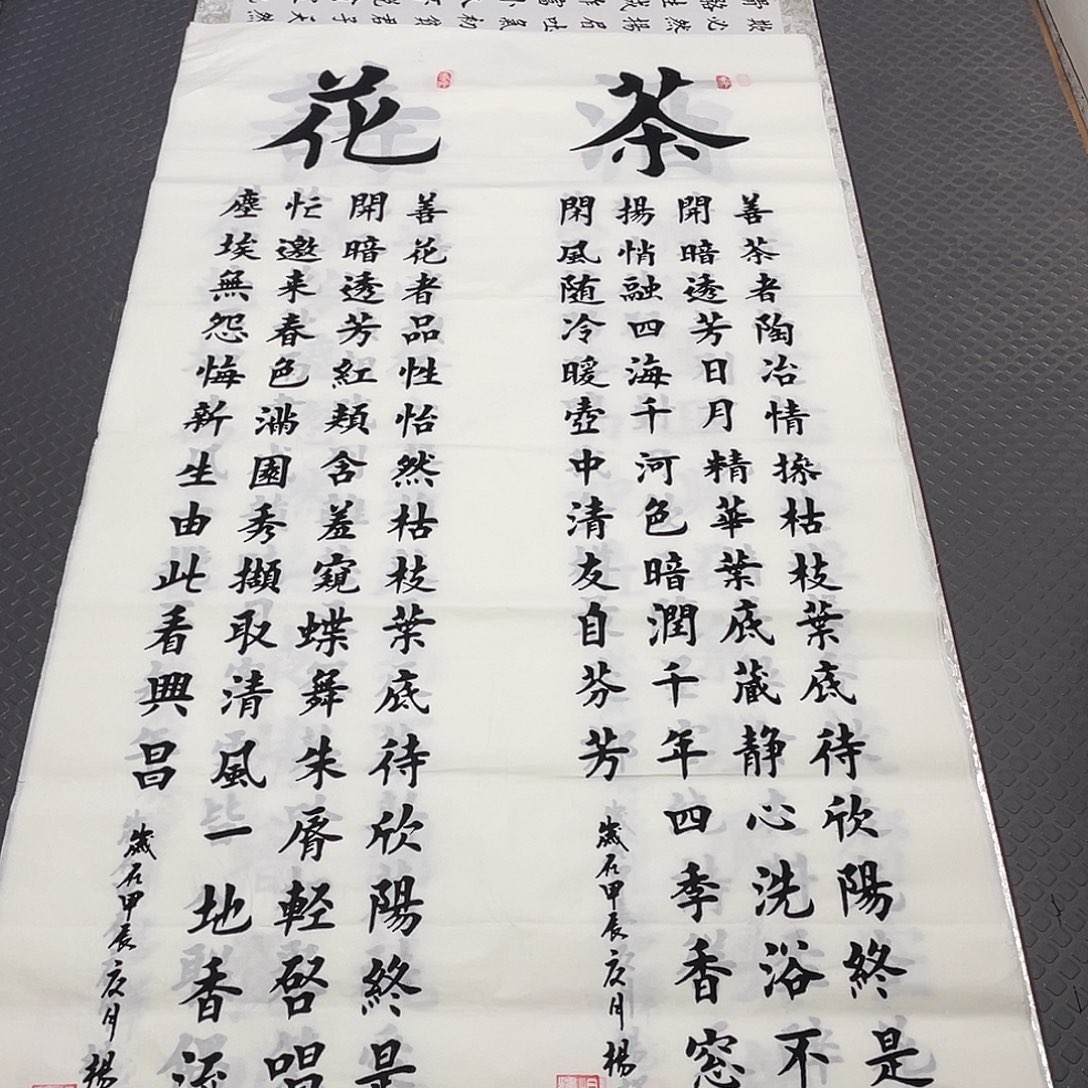 茶
善茶者陶冶情操枯枝葉底待欣陽終是
開暗透芳日月精華葉底蔵静心洗浴不
揚悄融四海千河色暗潤千年四季香窓
閑風随冷暖壺中清友自芬芳
歲在甲辰亥月楊
花
善花者品性怡然枯枝葉底待欣陽終是
開暗透芳紅頬含羞窺蝶舞朱脣軽啓唱
忙邀来春色滿園秀擷取清風一地香流
塵埃無怨悔新生由此看興昌
歲在甲辰亥月楊